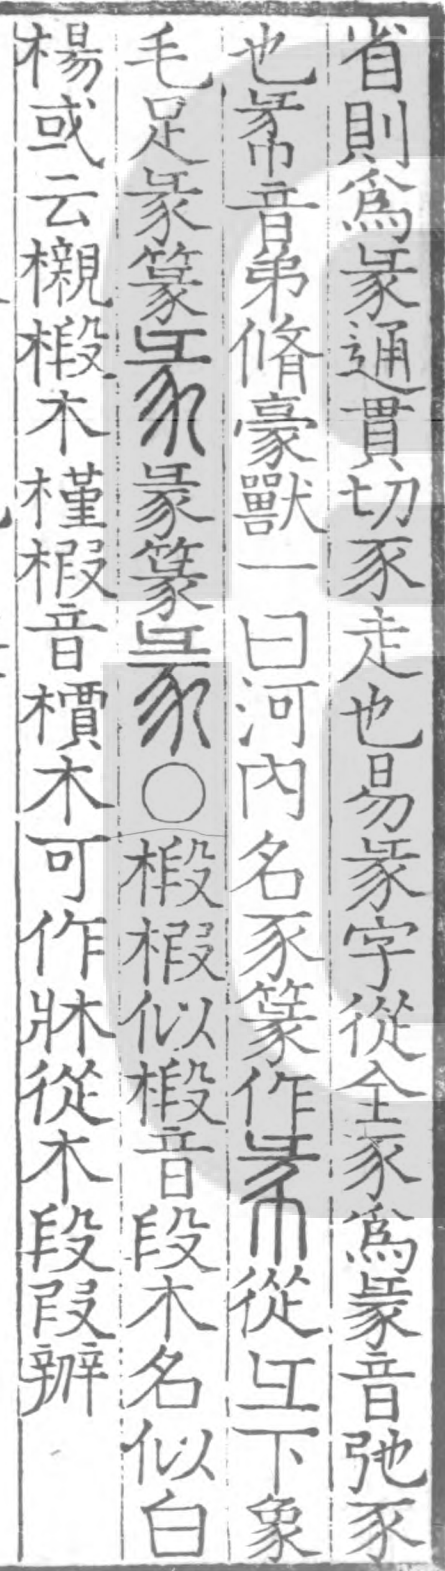 省則爲彖通貫切豕走也易彖字從全豕爲彖音弛豕
也㣇音弟脩豪獸一曰河內名豕篆作㣇從彑下象
毛足彖篆彖彖篆彖○椵椴似椴音段木名似白
楊或云櫬椴木槿椵音檟木可作牀從木段叚辦